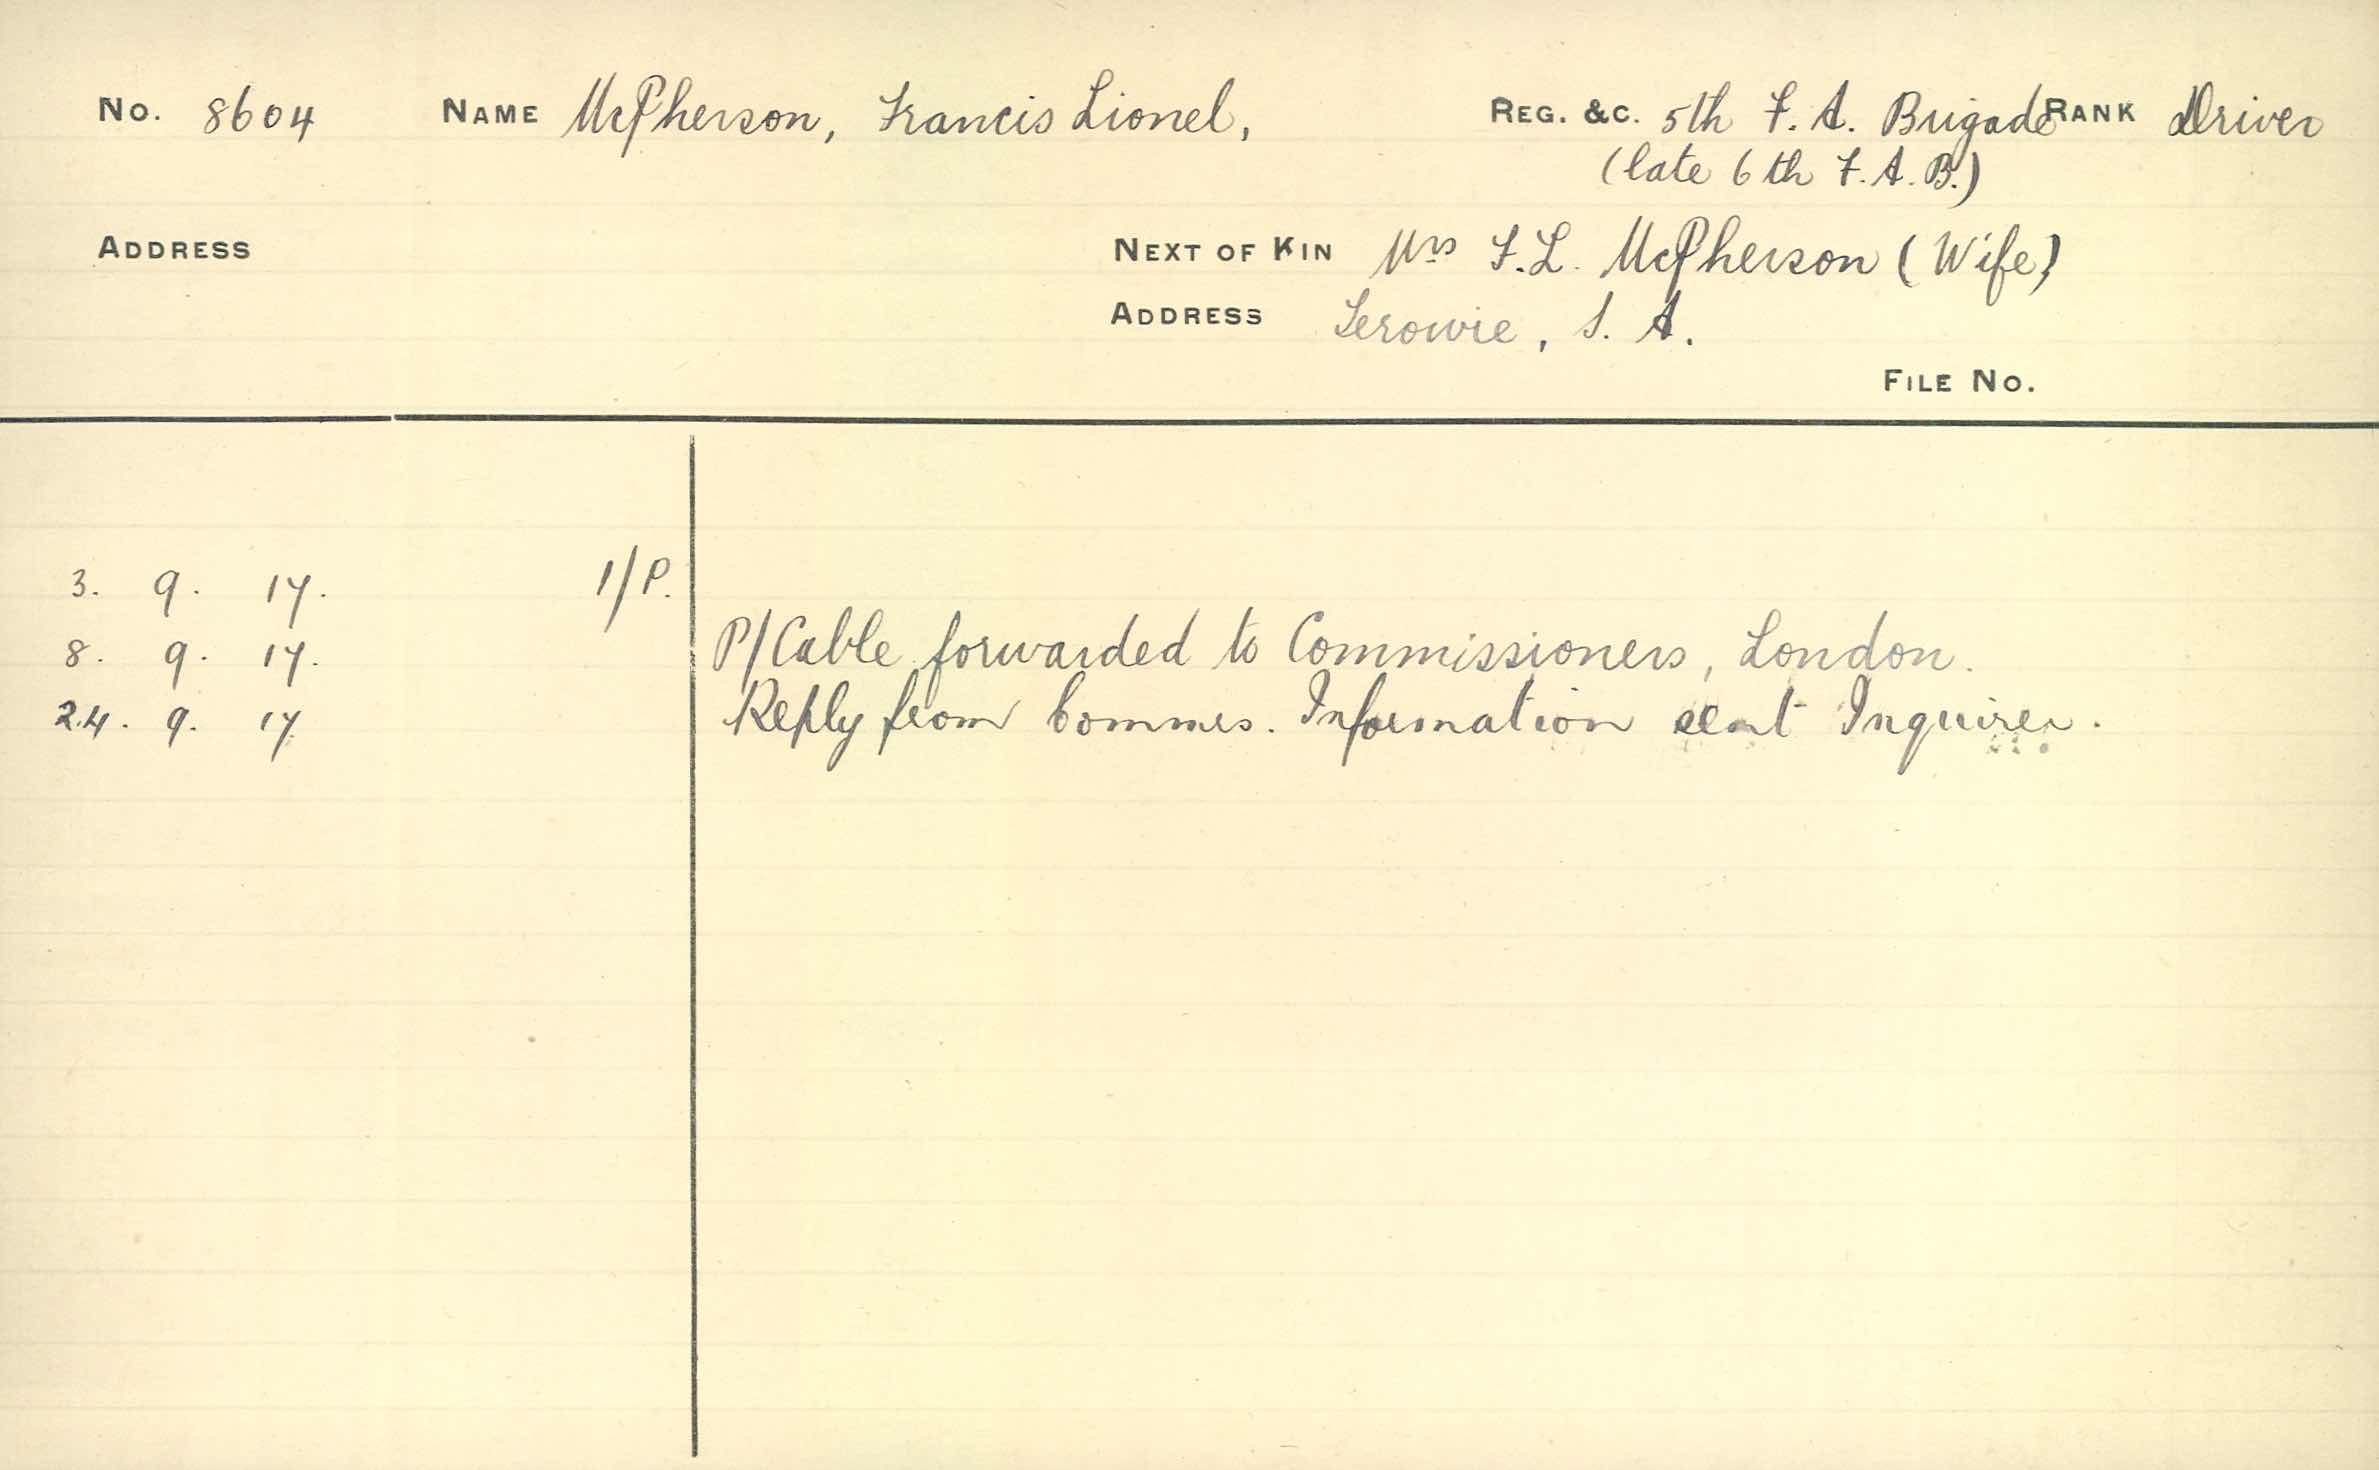 No. 8604 NAME McPherson, Francis Lionel, REG. &C. 5th F. A. Brigade RANK Driver
(late 6th F. A. B.)
ADDRESS NEXT OF KIN Mrs F. L. McPherson (Wife)
ADDRESS Terowie, S. A.
FILE NO.
3. 9. 17. 1/P.
8. 9. 17. P/Cable forwarded to Commissioners, London.
24. 9. 17 Reply from Commrs. Information sent Inquirer.